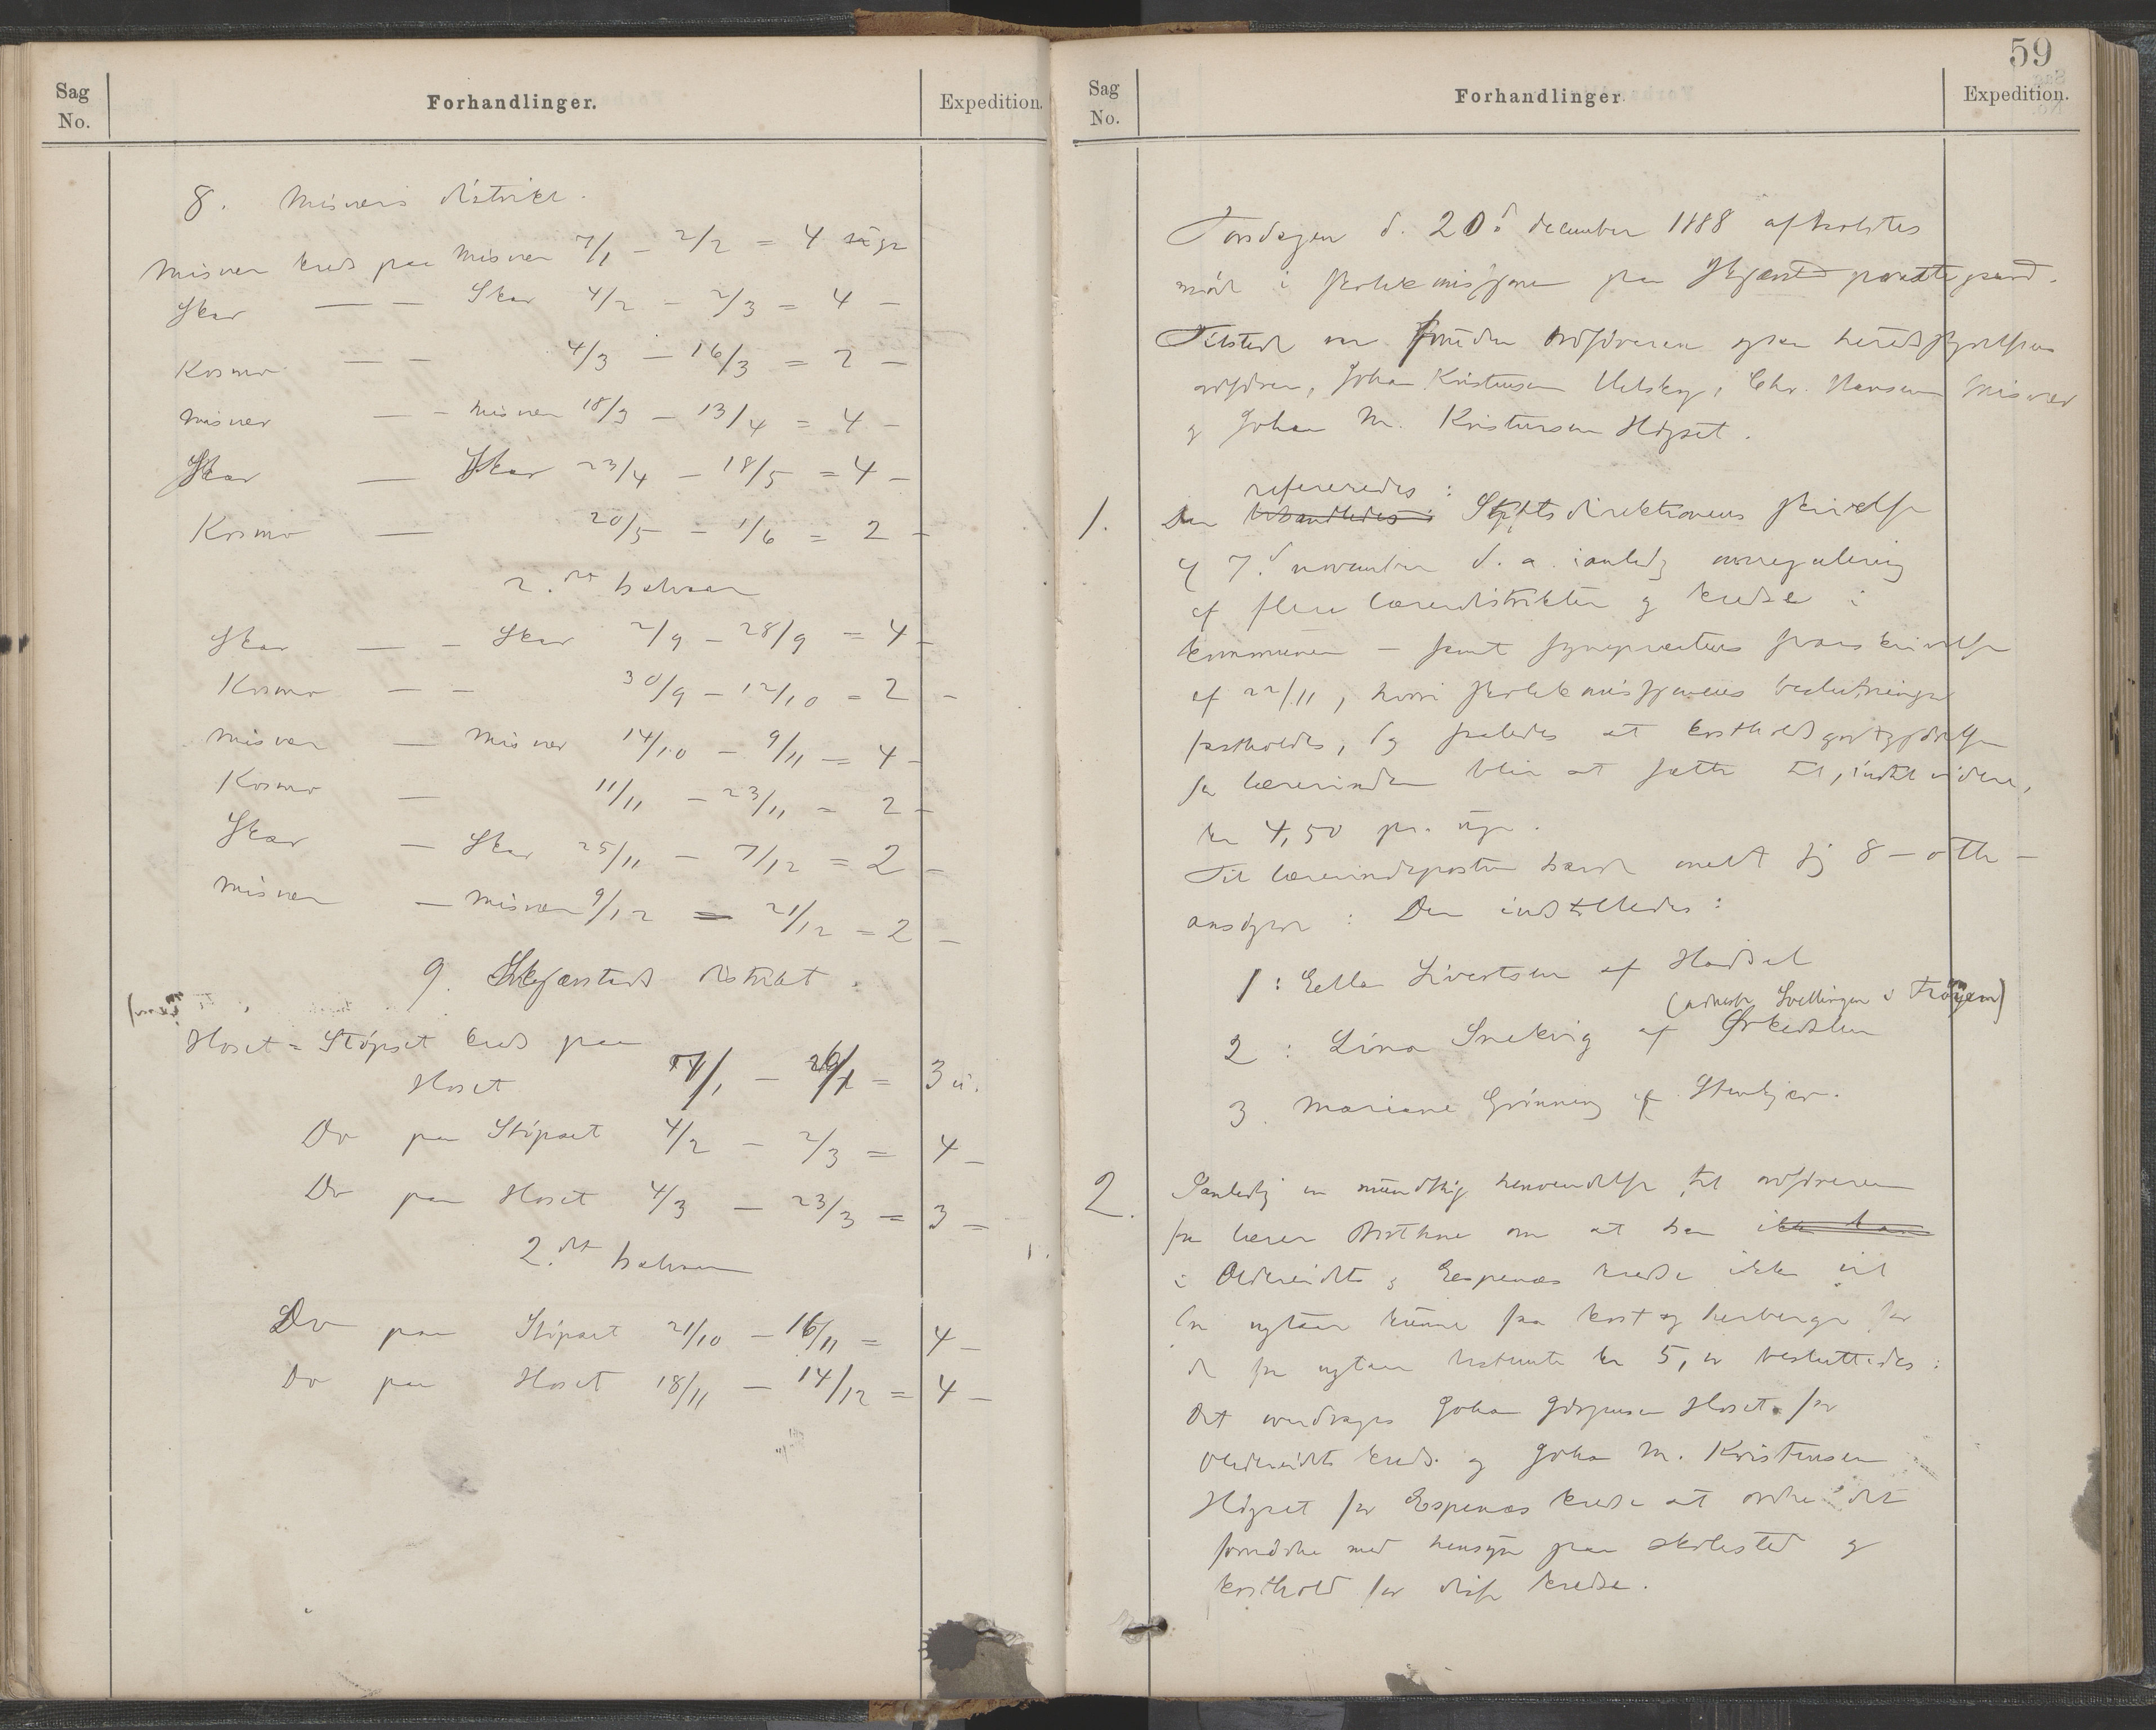 Sag No.
Forhandlinger.
Expedition.
8. Misvers distrikt.
Misver kreds paa Misver 7/1 - 2/2 = 4 uger
Skar — - Skar 4/2 - 2/3 = 4 -
Kosmo — - 4/3 - 16/3 = 2 -
Misver — - Misver 18/3 - 13/4 = 4 -
Skar — Skar 23/4 - 18/5 = 4 -
Kosmo — 20/5 - 1/6 = 2 -
2. det halvaar
Skar — - Skar 2/9 - 28/9 = 4 -
Kosmo — - 30/9 - 12/10 = 2 -
Misver — Misver 14/10 - 9/11 = 4 -
Kosmo — 11/11 - 23/11 = 2 -
Skar — Skar 25/11 - 7/12 = 2 -
Misver — Misver 9/12 = 21/12 = 2 -
9. Skjerstad distrikt.
Hoset = Støpset kreds paa
Hoset /1 - = 3 u.
Do paa Støpset 4/2 - 2/3 = 4 -
Do paa Hoset 4/3 - 23/3 = 3 =
2. det halvaar
Do paa Støpset 21/10 - 16/11 = 4 -
Do paa Hoset 18/11 - 14/12 = 4 -
59
Sag No.
Forhandlinger.
Expedition.
Torsdagen d. 20d december 1888 afholdtes
møde i skolekomissjonen paa Skjerstad præstegaard.
Tilstede var foruden ordføreren ogsaa heredsstyrelsens
ordfører, Johan Kristensen Utelsky, Chr. Hansen Misver
og Johan M. Kristensen Høgset.
refereredes :
1. Der behandledes : Stiftsdirektionens skrivelse
af 7d november d. a. ianledg omregulering
af flere lærerdistrikter og kredse i
kommunen — samt sogneprestens svarskrivelse
af 22/11, hvori skolekomissjonens beslutninger
fastholdes, og saaledes at kostholdsgodtgjørelsen
for lærerinden blir at sætte til, indtil videre,
kr 4,50 pr. uge.
Til lærerindeposten havde meldt sig 8 — otte —
ansøgere : Der indstilledes :
1 : Ella Sivertsen af Hadsel
(adresse Svellingen i Frøyen)
2 : Lina Snekvig af Ørkedalen
3. Mariane Grønning af Stenkjer.
2. Ianledg en mundtlig henvendelse til ordføreren
fra lærer om at han ikke kan
i Oldereidets og Espenæs kredse ikke vil
for ugtaar kunne faa kost og herberge for
de for ugtaar bestemte kr 5, er besluttedes :
Det overdrages Johan Jørgensen Hoset for
Oldereidets kreds og Johan M. Kristensen
Høgset for Espenæs kreds at ordne det
fornødne med hensyn paa skolested og
kosthold for disse kredse.